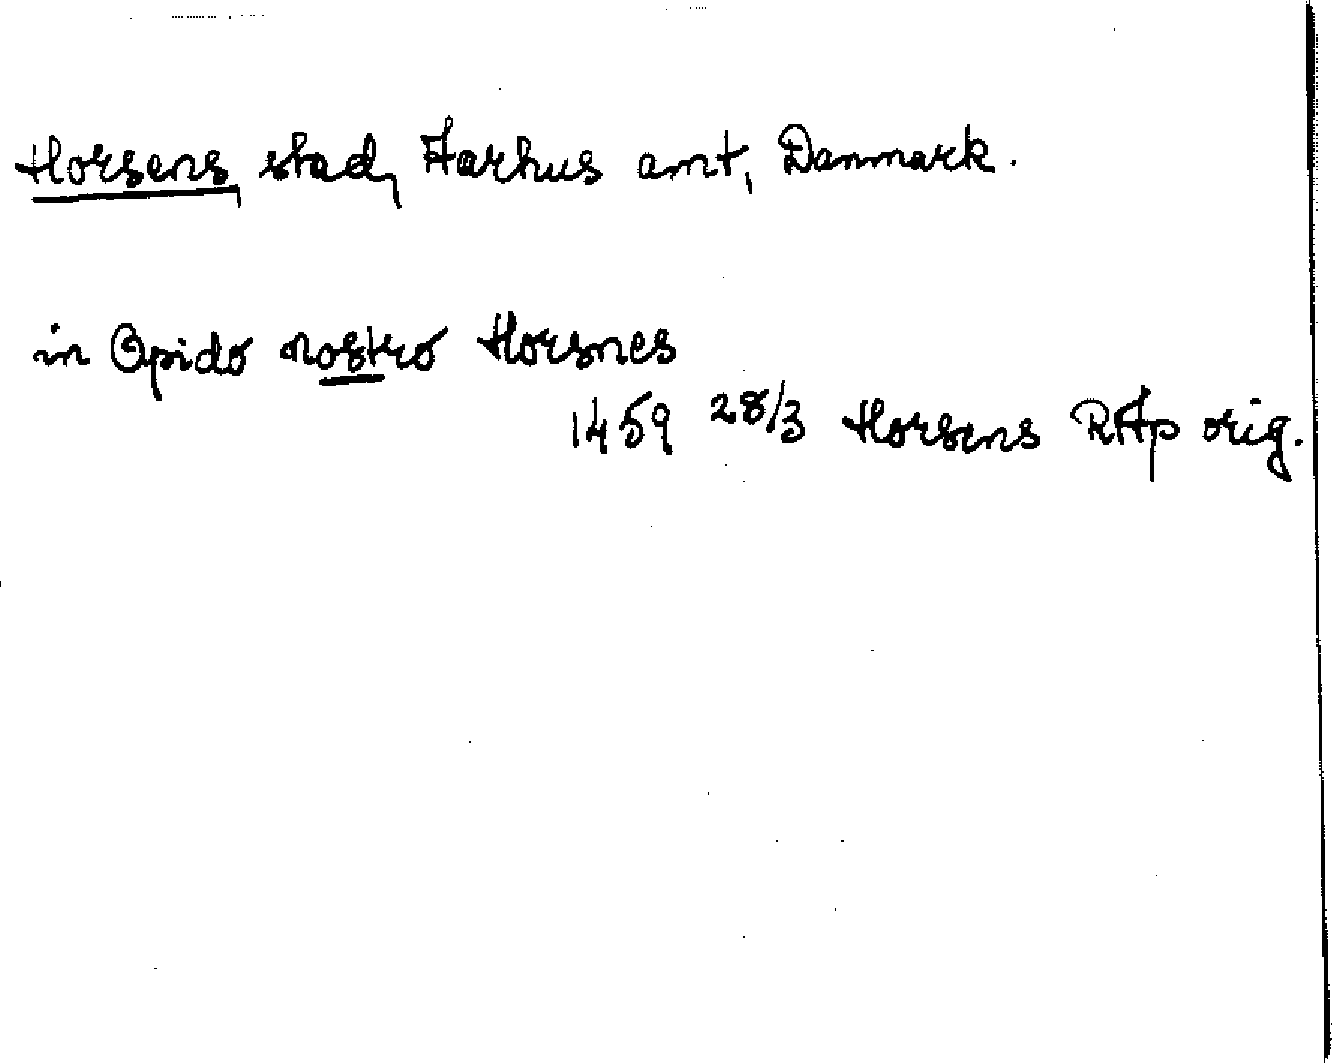 Horsens, stad, Aarhus amt, Danmark.
in Opido nostro Horsnes
1459 28/3 Horsens RAp orig.